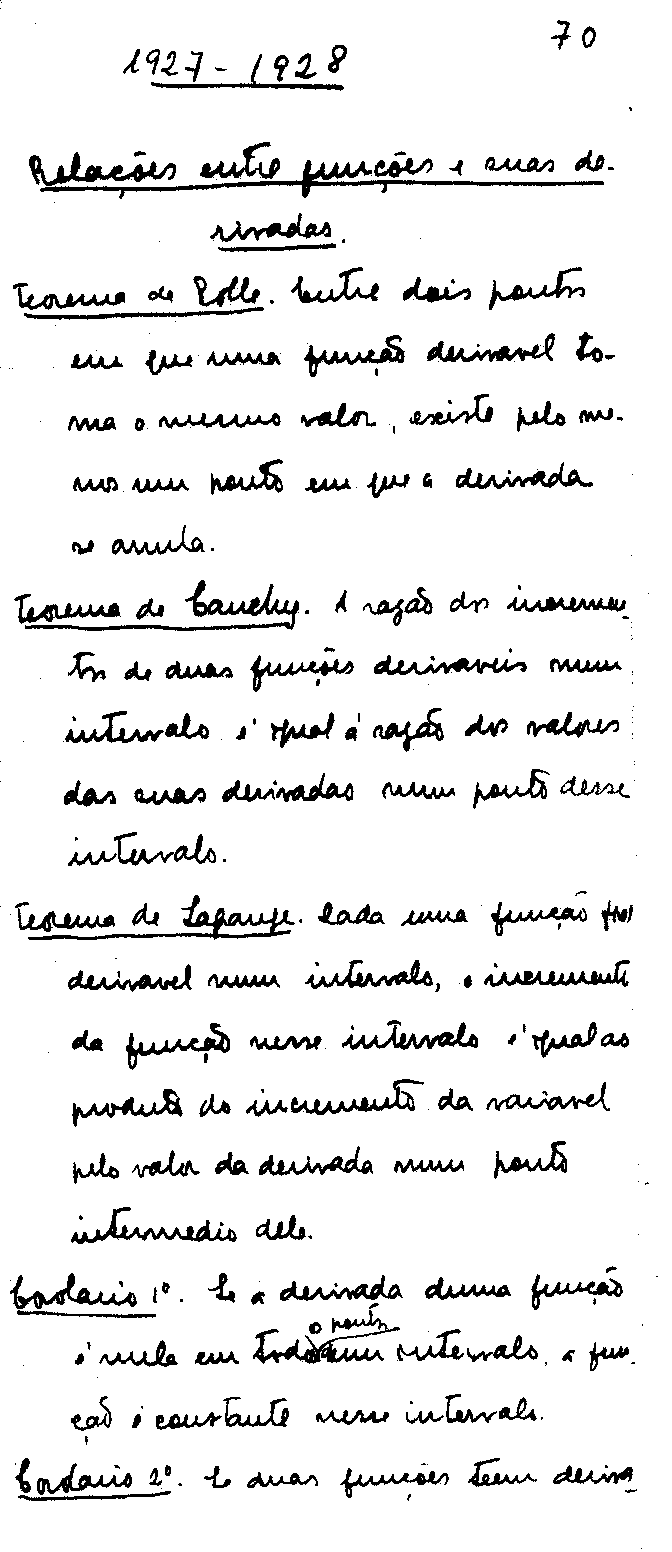 70
1927 - 1928
Relações entre funções e suas de-
rivadas.
Teorema de Rolle. Entre dois pontos
em que uma função derivavel to-
ma o mesmo valor, existe pelo me-
nos um ponto em que a derivada
se anula.
Teorema de Cauchy. A razão dos incremen-
tos de duas funções derivaveis num
intervalo é igual á razão dos valores
das suas derivadas num ponto desse
intervalo.
Teorema de Lagrange. Dada uma função f(x)
derivavel num intervalo, o incremento
da função nesse intervalo é igual ao
produto do incremento da variavel
pelo valor da derivada num ponto
intermedio dele.
Corolario 1º. Se a derivada duma função
o ponto
é nula em todo um intervalo, a fun-
ção é constante nesse intervalo.
Corolario 2º. Se duas funções teem deriva-